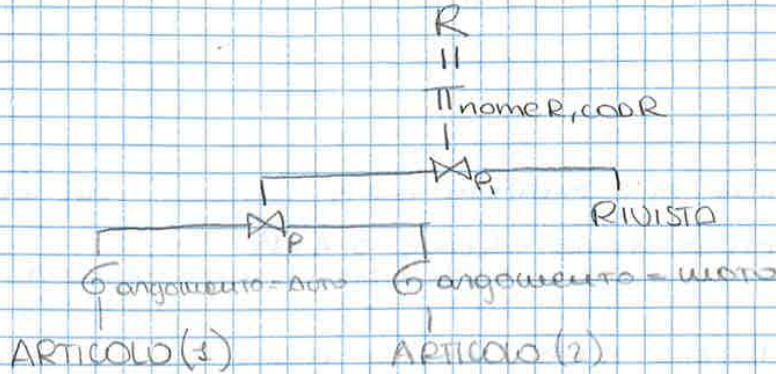 R
=
π nomeR, codR
⋈ P₁
RIVISTA
⋈ P
σ argomento = Auto σ argomento = moto
ARTICOLO (1) ARTICOLO (2)